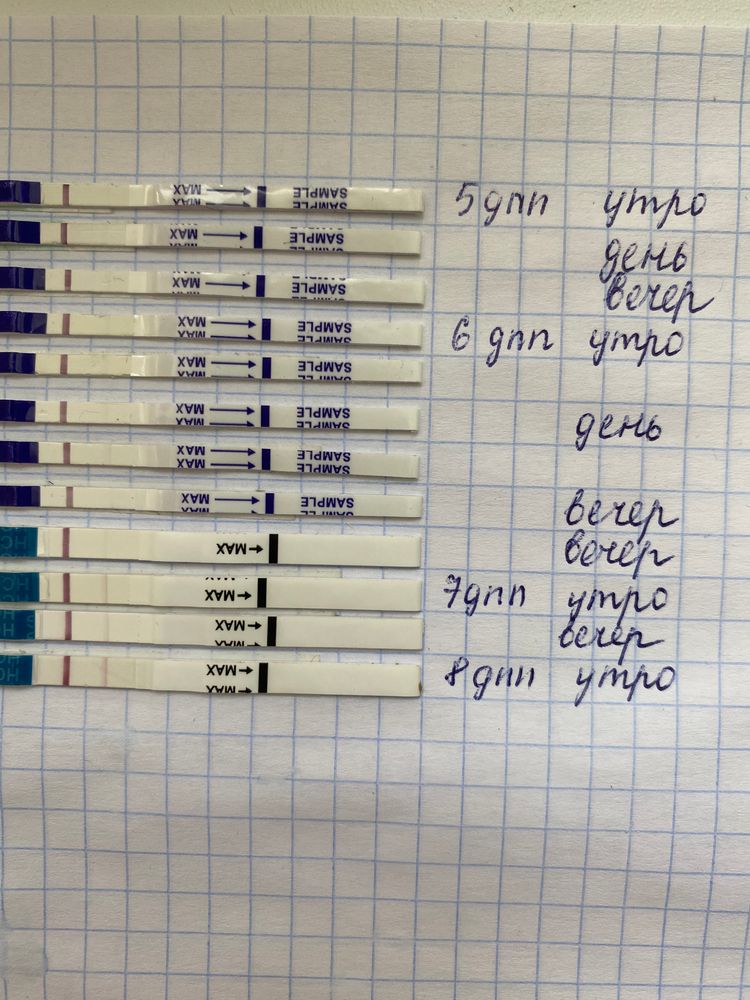 MAX SAMPLE 5 дпп утро
MAX SAMPLE день
MAX SAMPLE вечер
MAX SAMPLE 6 дпп утро
MAX SAMPLE
MAX SAMPLE день
MAX SAMPLE
MAX SAMPLE вечер
MAX вечер
MAX 7 дпп утро
MAX вечер
MAX 8 дпп утро